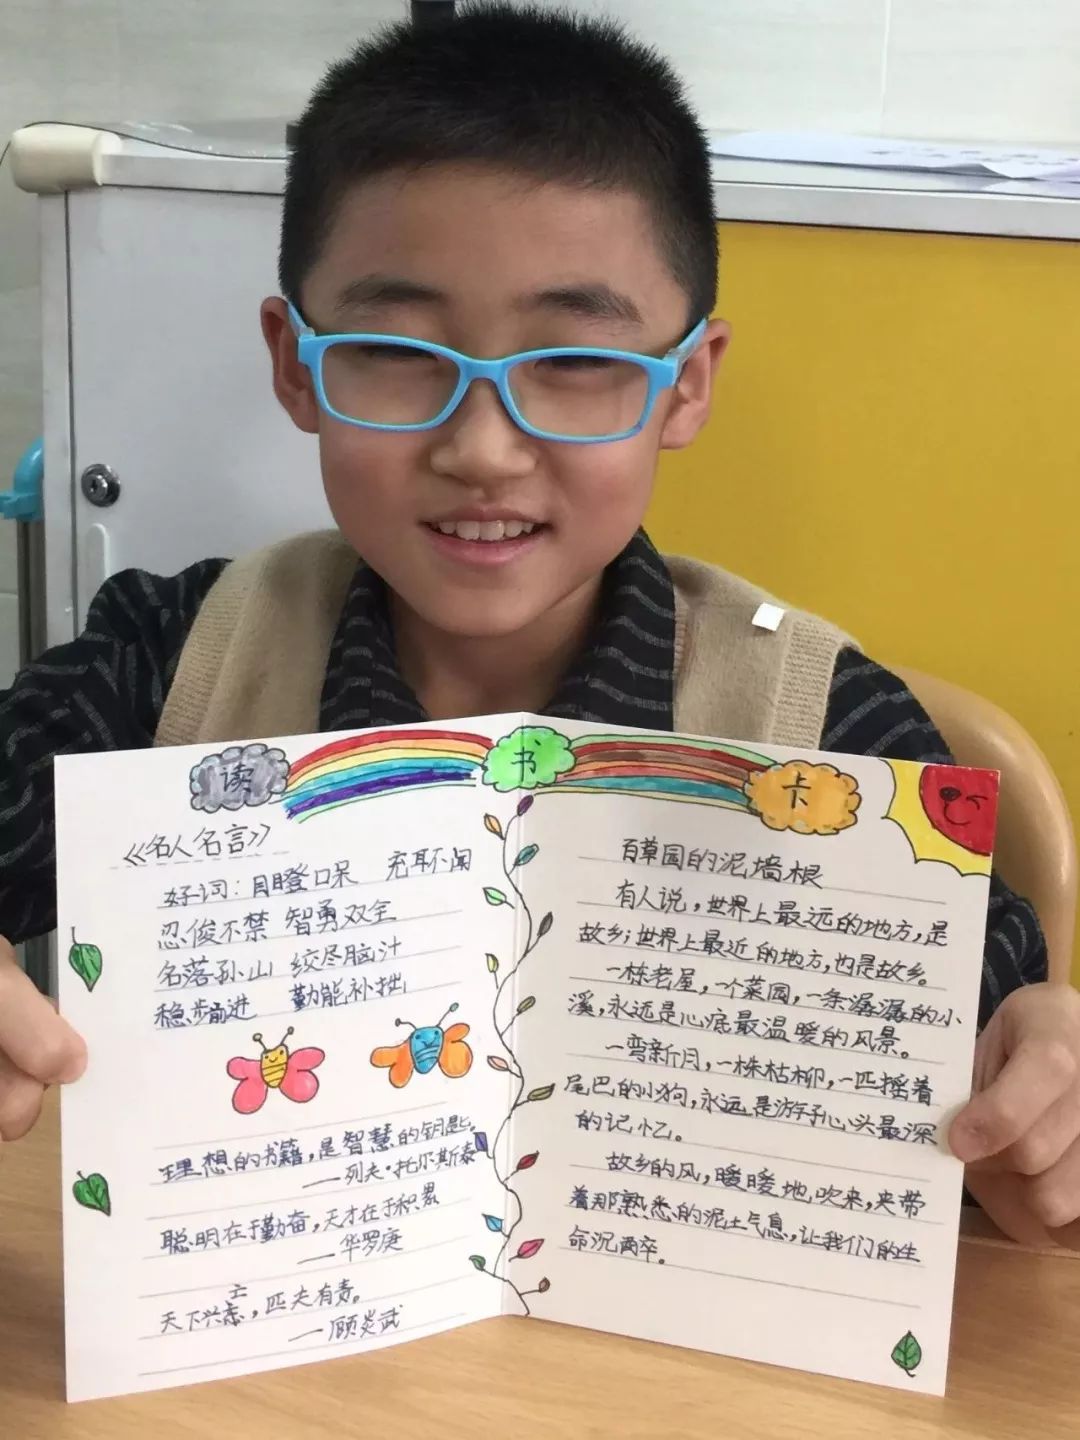 读 书 卡
《名人名言》
好词：目瞪口呆 充耳不闻
忍俊不禁 智勇双全
名落孙山 绞尽脑汁
稳步前进 勤能补拙
理想的书籍，是智慧的钥匙。
——列夫·托尔斯泰
聪明在于勤奋，天才在于积累
——华罗庚
亡
天下兴，匹夫有责。
——顾炎武
百草园的泥墙根
有人说，世界上最远的地方，是
故乡；世界上最近的地方，也是故乡。
一栋老屋，一个菜园，一条潺潺的小
溪，永远是心底最温暖的风景。
一弯新月，一株枯柳，一匹摇着
尾巴的小狗，永远是游子心头最深
的记忆。
故乡的风，暖暖地吹来，夹带
着那熟悉的泥土气息，让我们的生
命沉